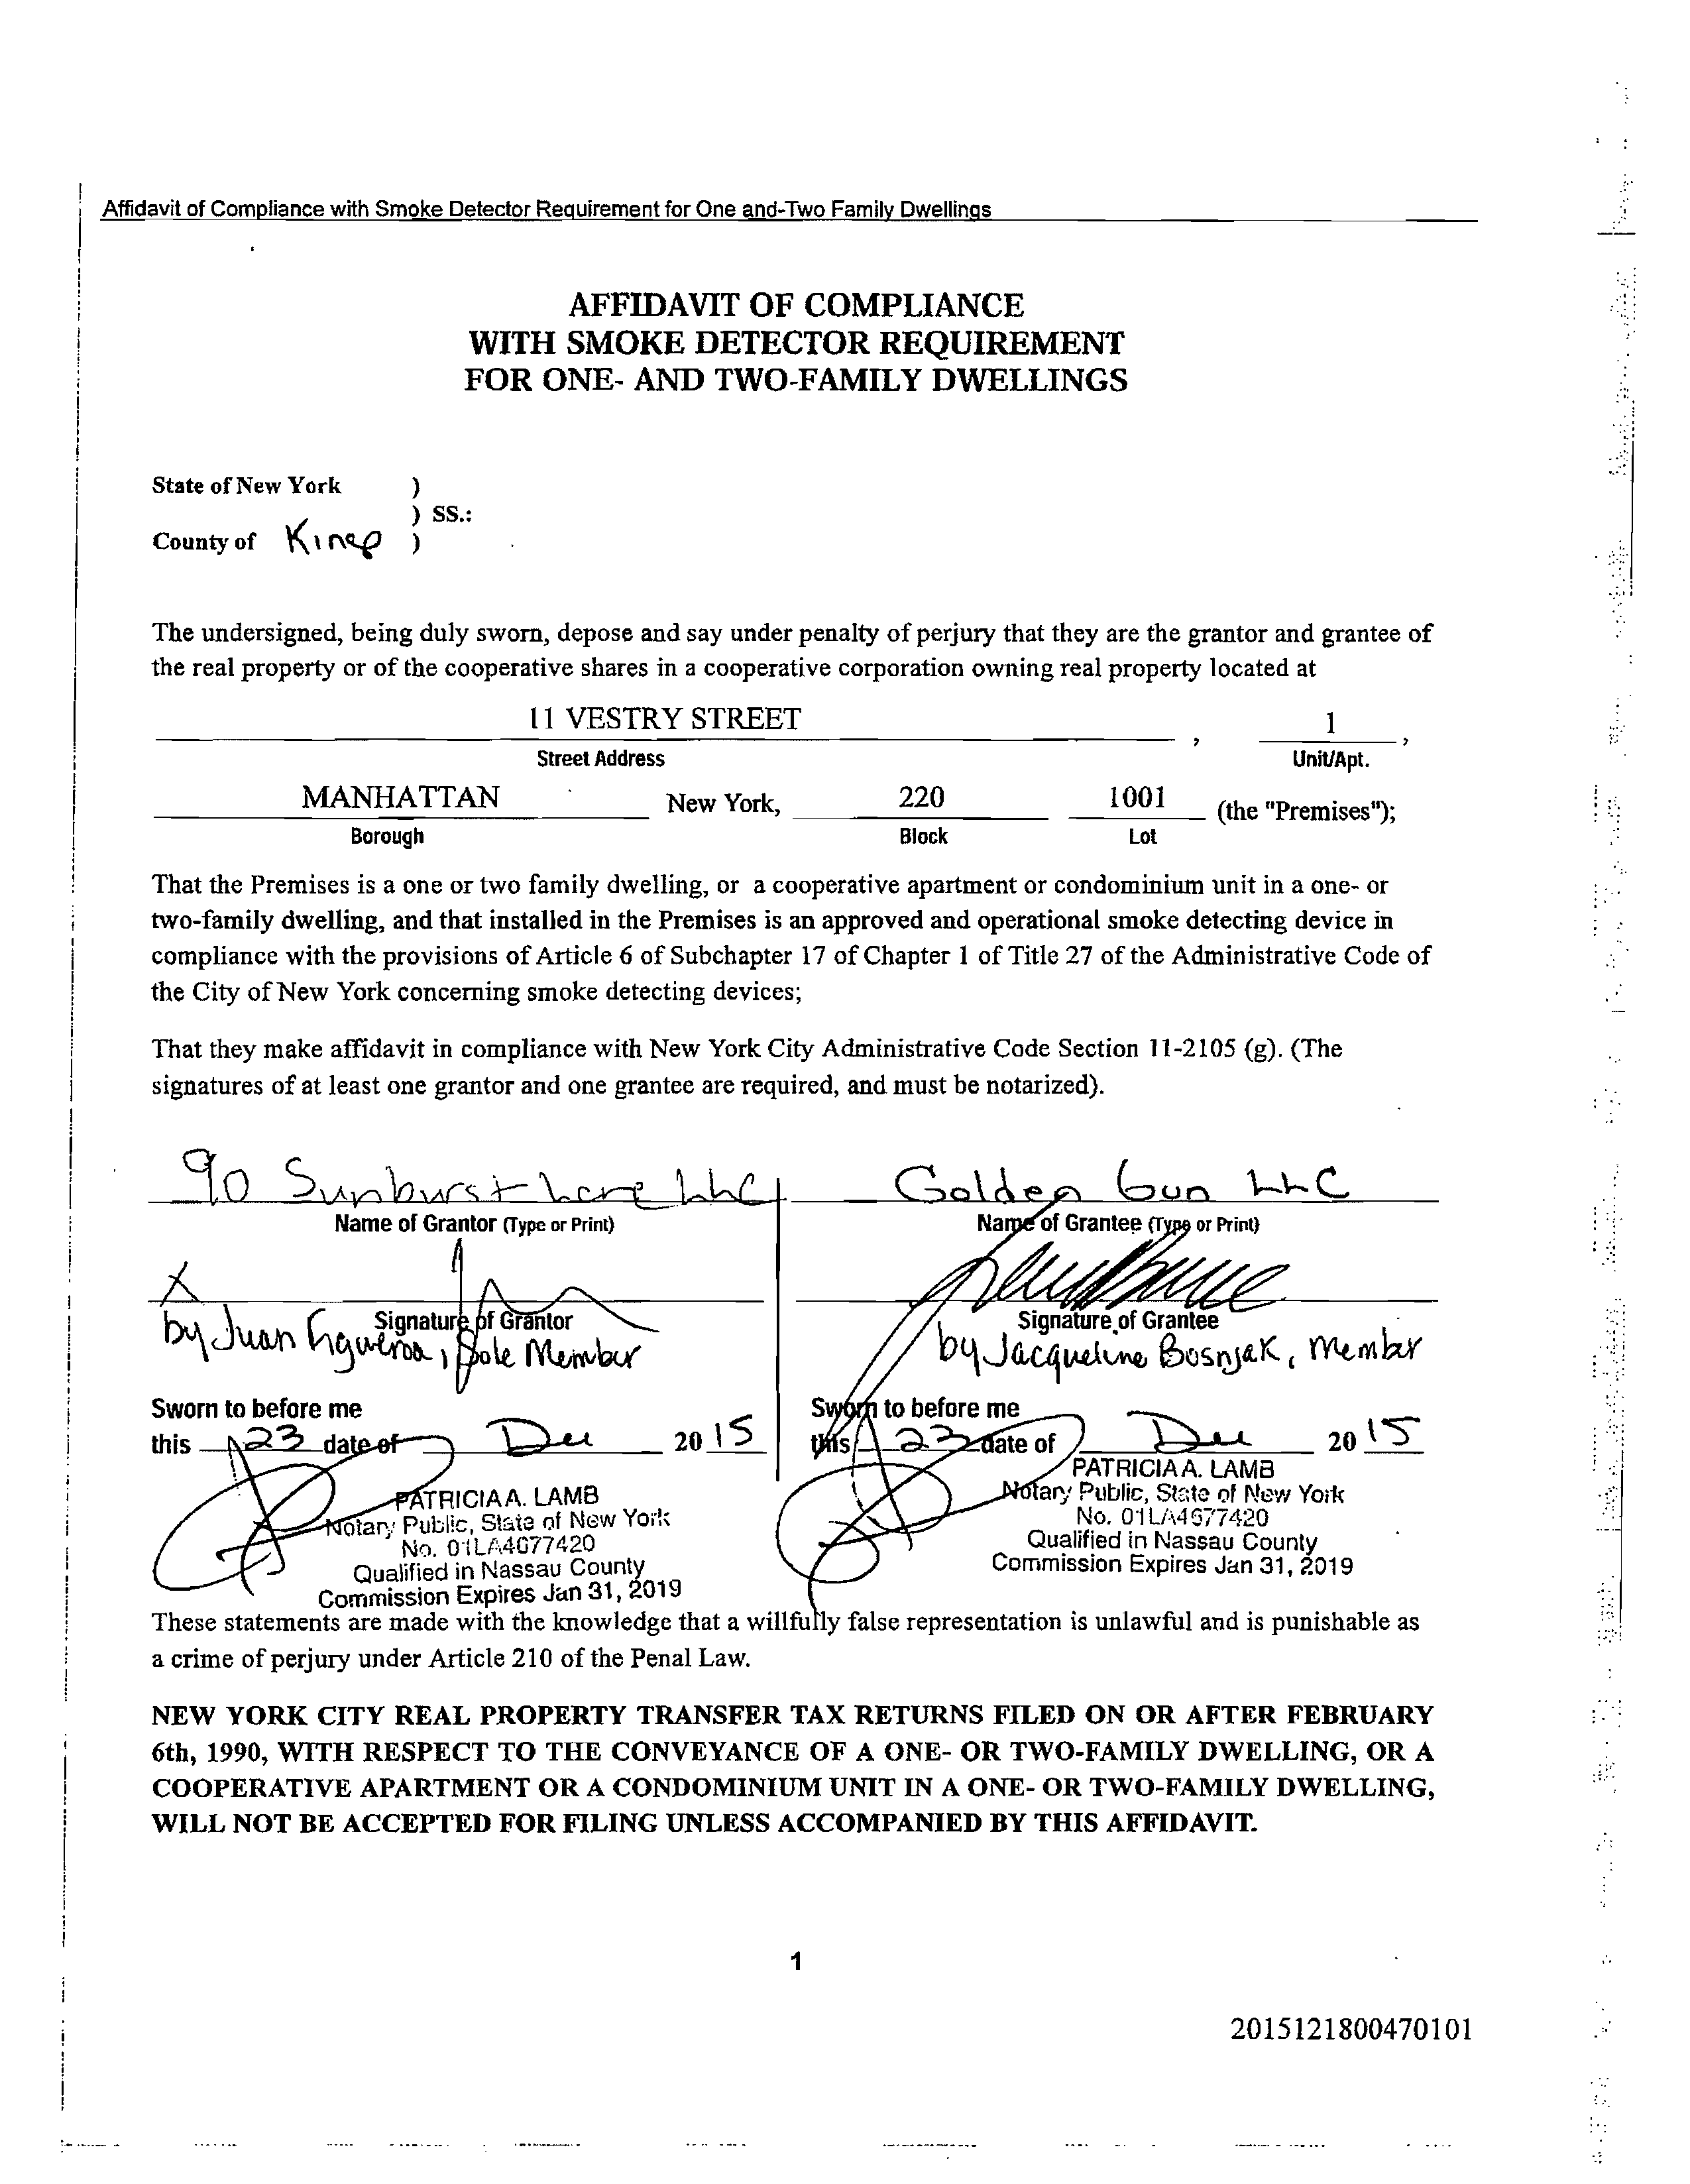 Affidavit of Compliance with Smoke Detector Requirement for One and-Two Family Dwellings
AFFIDAVIT OF COMPLIANCE
WITH SMOKE DETECTOR REQUIREMENT
FOR ONE- AND TWO-FAMILY DWELLINGS
State of New York )
) SS.:
County of Kings )
The undersigned, being duly sworn, depose and say under penalty of perjury that they are the grantor and grantee of
the real property or of the cooperative shares in a cooperative corporation owning real property located at
11 VESTRY STREET , 1 ,
Street Address Unit/Apt.
MANHATTAN New York, 220 1001 (the "Premises");
Borough Block Lot
That the Premises is a one or two family dwelling, or a cooperative apartment or condominium unit in a one- or
two-family dwelling, and that installed in the Premises is an approved and operational smoke detecting device in
compliance with the provisions of Article 6 of Subchapter 17 of Chapter 1 of Title 27 of the Administrative Code of
the City of New York concerning smoke detecting devices;
That they make affidavit in compliance with New York City Administrative Code Section 11-2105 (g). (The
signatures of at least one grantor and one grantee are required, and must be notarized).
90 Sunburst Lane LLC Golden Gun LLC
Name of Grantor (Type or Print) Name of Grantee (Type or Print)
X
Signature of Grantor Signature of Grantee
by Juan Figueroa, Sole Member by Jacqueline Bosnjak, Member
Sworn to before me Sworn to before me
this 23 date of Dec 2015 this 23 date of Dec 2015
PATRICIA A. LAMB PATRICIA A. LAMB
Notary Public, State of New York Notary Public, State of New York
No. 01LA4677420 No. 01LA4677420
Qualified in Nassau County Qualified in Nassau County
Commission Expires Jan 31, 2019 Commission Expires Jan 31, 2019
These statements are made with the knowledge that a willfully false representation is unlawful and is punishable as
a crime of perjury under Article 210 of the Penal Law.
NEW YORK CITY REAL PROPERTY TRANSFER TAX RETURNS FILED ON OR AFTER FEBRUARY
6th, 1990, WITH RESPECT TO THE CONVEYANCE OF A ONE- OR TWO-FAMILY DWELLING, OR A
COOPERATIVE APARTMENT OR A CONDOMINIUM UNIT IN A ONE- OR TWO-FAMILY DWELLING,
WILL NOT BE ACCEPTED FOR FILING UNLESS ACCOMPANIED BY THIS AFFIDAVIT.
1
2015121800470101